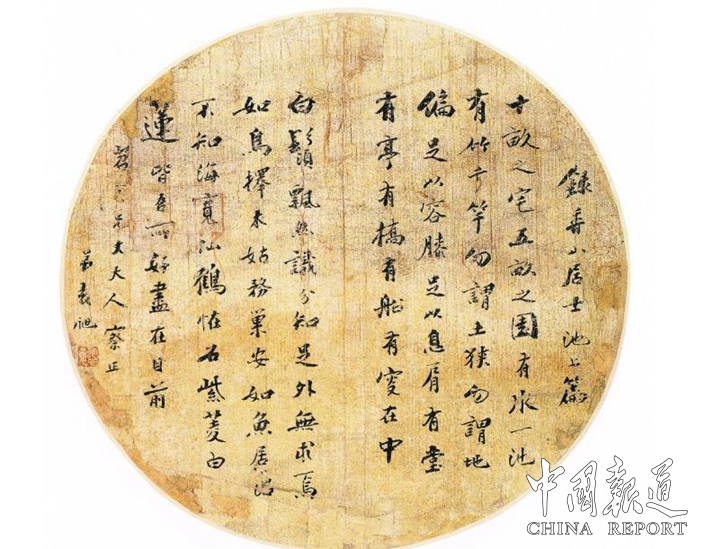 錄香山居士池上篇
十畝之宅五畝之園有水一池
有竹千竿勿謂土狹勿謂地
偏足以容膝足以息肩有堂
有亭有橋有船有叟在中
白鬚飄然識分知足外無求焉
如鳥擇木姑務巢安如魚居沼
不知海寬仙鶴怪石紫菱白
蓮皆吾所好盡在目前
兄丈大人察正
弟袁
中國報道
CHINA REPORT